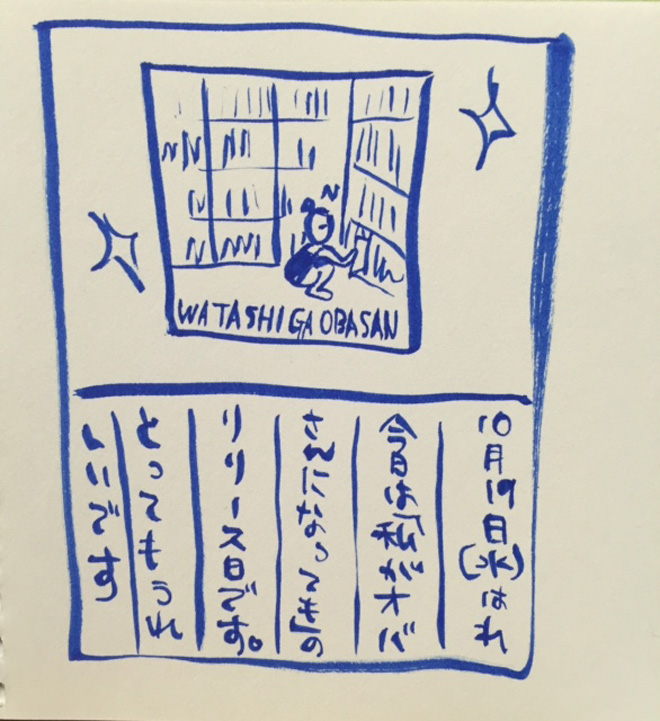 WATASHI GA OBASAN
10月19日(水)はれ
今日は「私がオバ
さんになっても」の
リリース日です。
とってもうれ
しいです